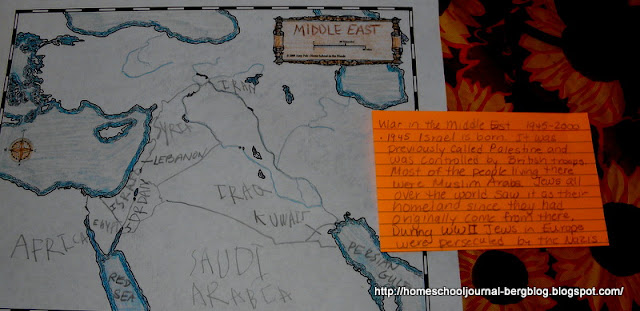 MIDDLE EAST
IRAN
SYRIA
LEBANON
ISRAEL
JORDAN
EGYPT
IRAQ
KUWAIT
AFRICA
RED
SEA
SAUDI
ARABIA
PERSIAN
GULF
War in the Middle East 1945-2000
· 1945 Israel is born. It was
previously called Palestine and
was controlled by British troops.
Most of the people living there
were Muslim Arabs. Jews all
over the world saw it as their
homeland since they had
originally come from there.
During WWII Jews in Europe
were persecuted by the Nazis
http://homeschooljournal-bergblog.blogspot.com/